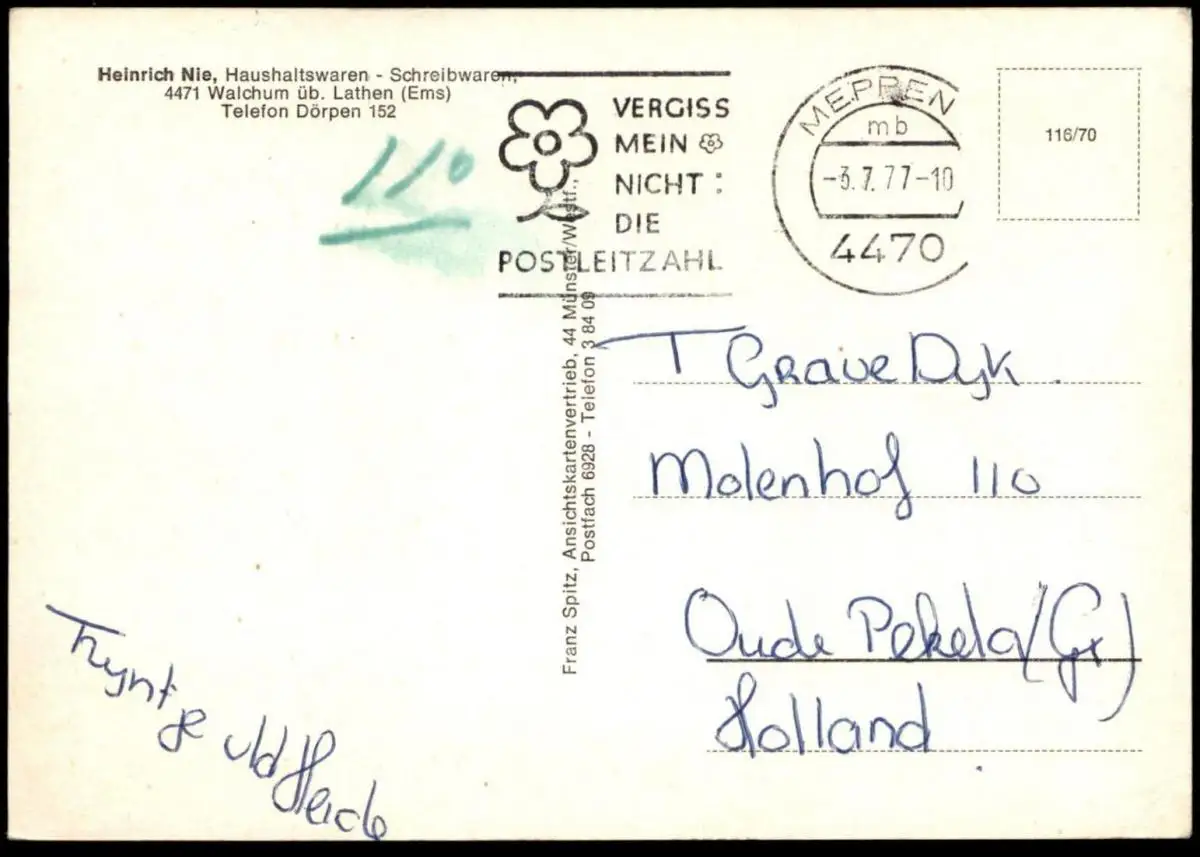 Heinrich Nie, Haushaltswaren - Schreibwaren,
4471 Walchum üb. Lathen (Ems)
Telefon Dörpen 152
110
VERGISS
MEIN
NICHT:
DIE
POSTLEITZAHL
MEPPEN
mb
-3.7.77-10
4470
116/70
Franz Spitz, Ansichtskartenvertrieb, 44 Münster/Westf.,
Postfach 6928 - Telefon 3 84 09
T Grave Dyk.
Molenhof 110
Oude Pekela (Gr)
Holland
Tryntje vld Heide